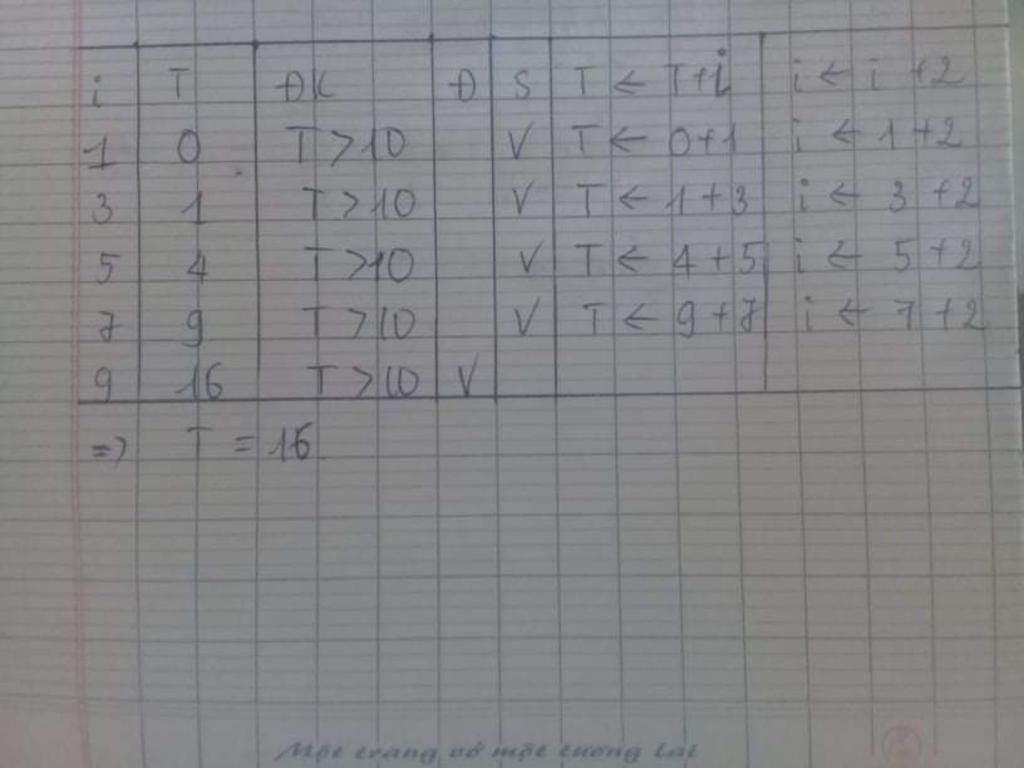 i T ĐK Đ S T ← T+i i ← i +2
1 0 T >10 V T ← 0+1 i ← 1+2
3 1 T >10 V T ← 1+3 i ← 3 +2
5 4 T >10 V T ← 4+5 i ← 5 +2
7 9 T >10 V T ← 9+7 i ← 7 +2
9 16 T >10 V
=> T = 16
Một trang vở một tương lai